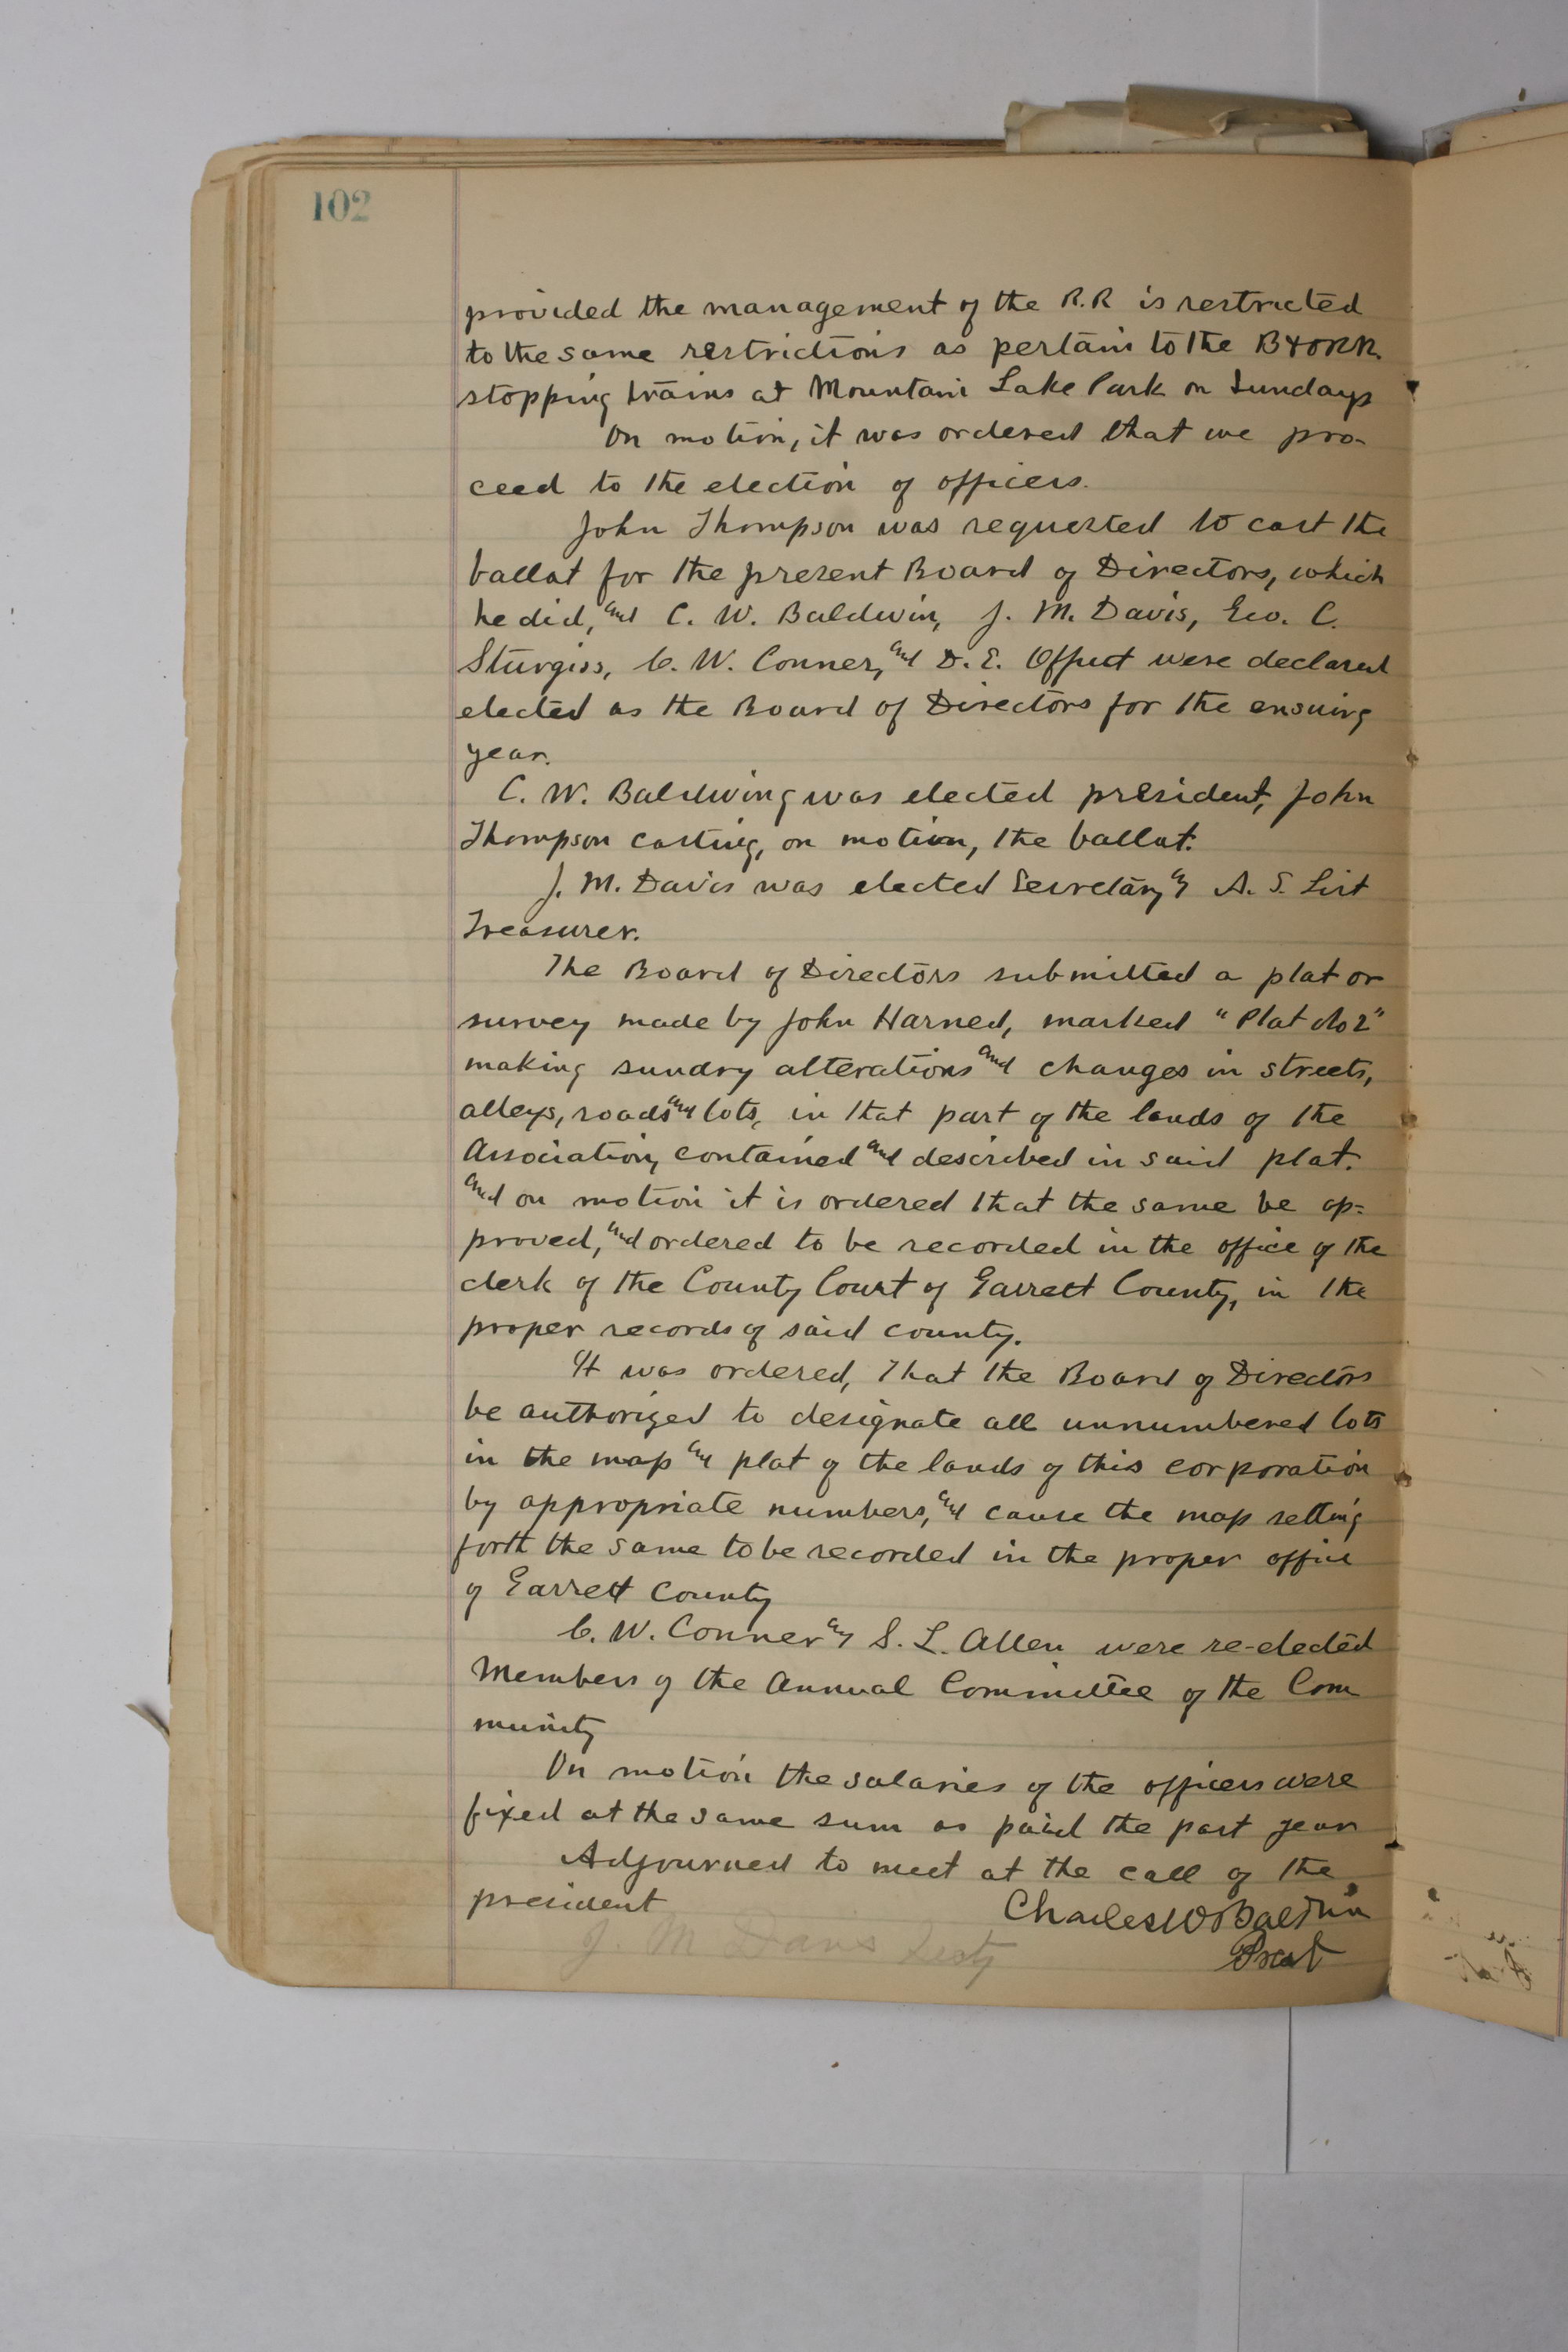 102
provided the management of the R.R is restricted
to the same restrictions as pertain to the B & O RR.
stopping trains at Mountain Lake Park on Sundays
On motion, it was ordered that we pro-
ceed to the election of officers.
John Thompson was requested to cast the
ballot for the present Board of Directors, which
he did, and C. W. Baldwin, J. M. Davis, Geo. C.
Sturgiss, C. W. Conner, and D. E. Offutt were declared
elected as the Board of Directors for the ensuing
year.
C. W. Baldwing was elected president, John
Thompson casting, on motion, the ballot.
J. M. Davis was elected Secretary and A. S. List
Treasurer.
The Board of Directors submitted a plat or
survey made by John Harned, marked "Plat No 2"
making sundry alterations and changes in streets,
alleys, roads and lots, in that part of the lands of the
Association, contained and described in said plat.
and on motion it is ordered that the same be ap-
proved, and ordered to be recorded in the office of the
clerk of the County Court of Garrett County, in the
proper records of said county.
It was ordered, That the Board of Directors
be authorized to designate all unnumbered lots
in the map and plat of the lands of this corporation
by appropriate numbers, and cause the map setting
forth the same to be recorded in the proper office
of Garrett County
C. W. Conner and S. L. Allen were re-elected
Members of the Annual Committee of the Com
munity
On motion the salaries of the officers were
fixed at the same sum as paid the past year
Adjourned to meet at the call of the
president
Charles W Baldwin
J M Davis Secty
Prest